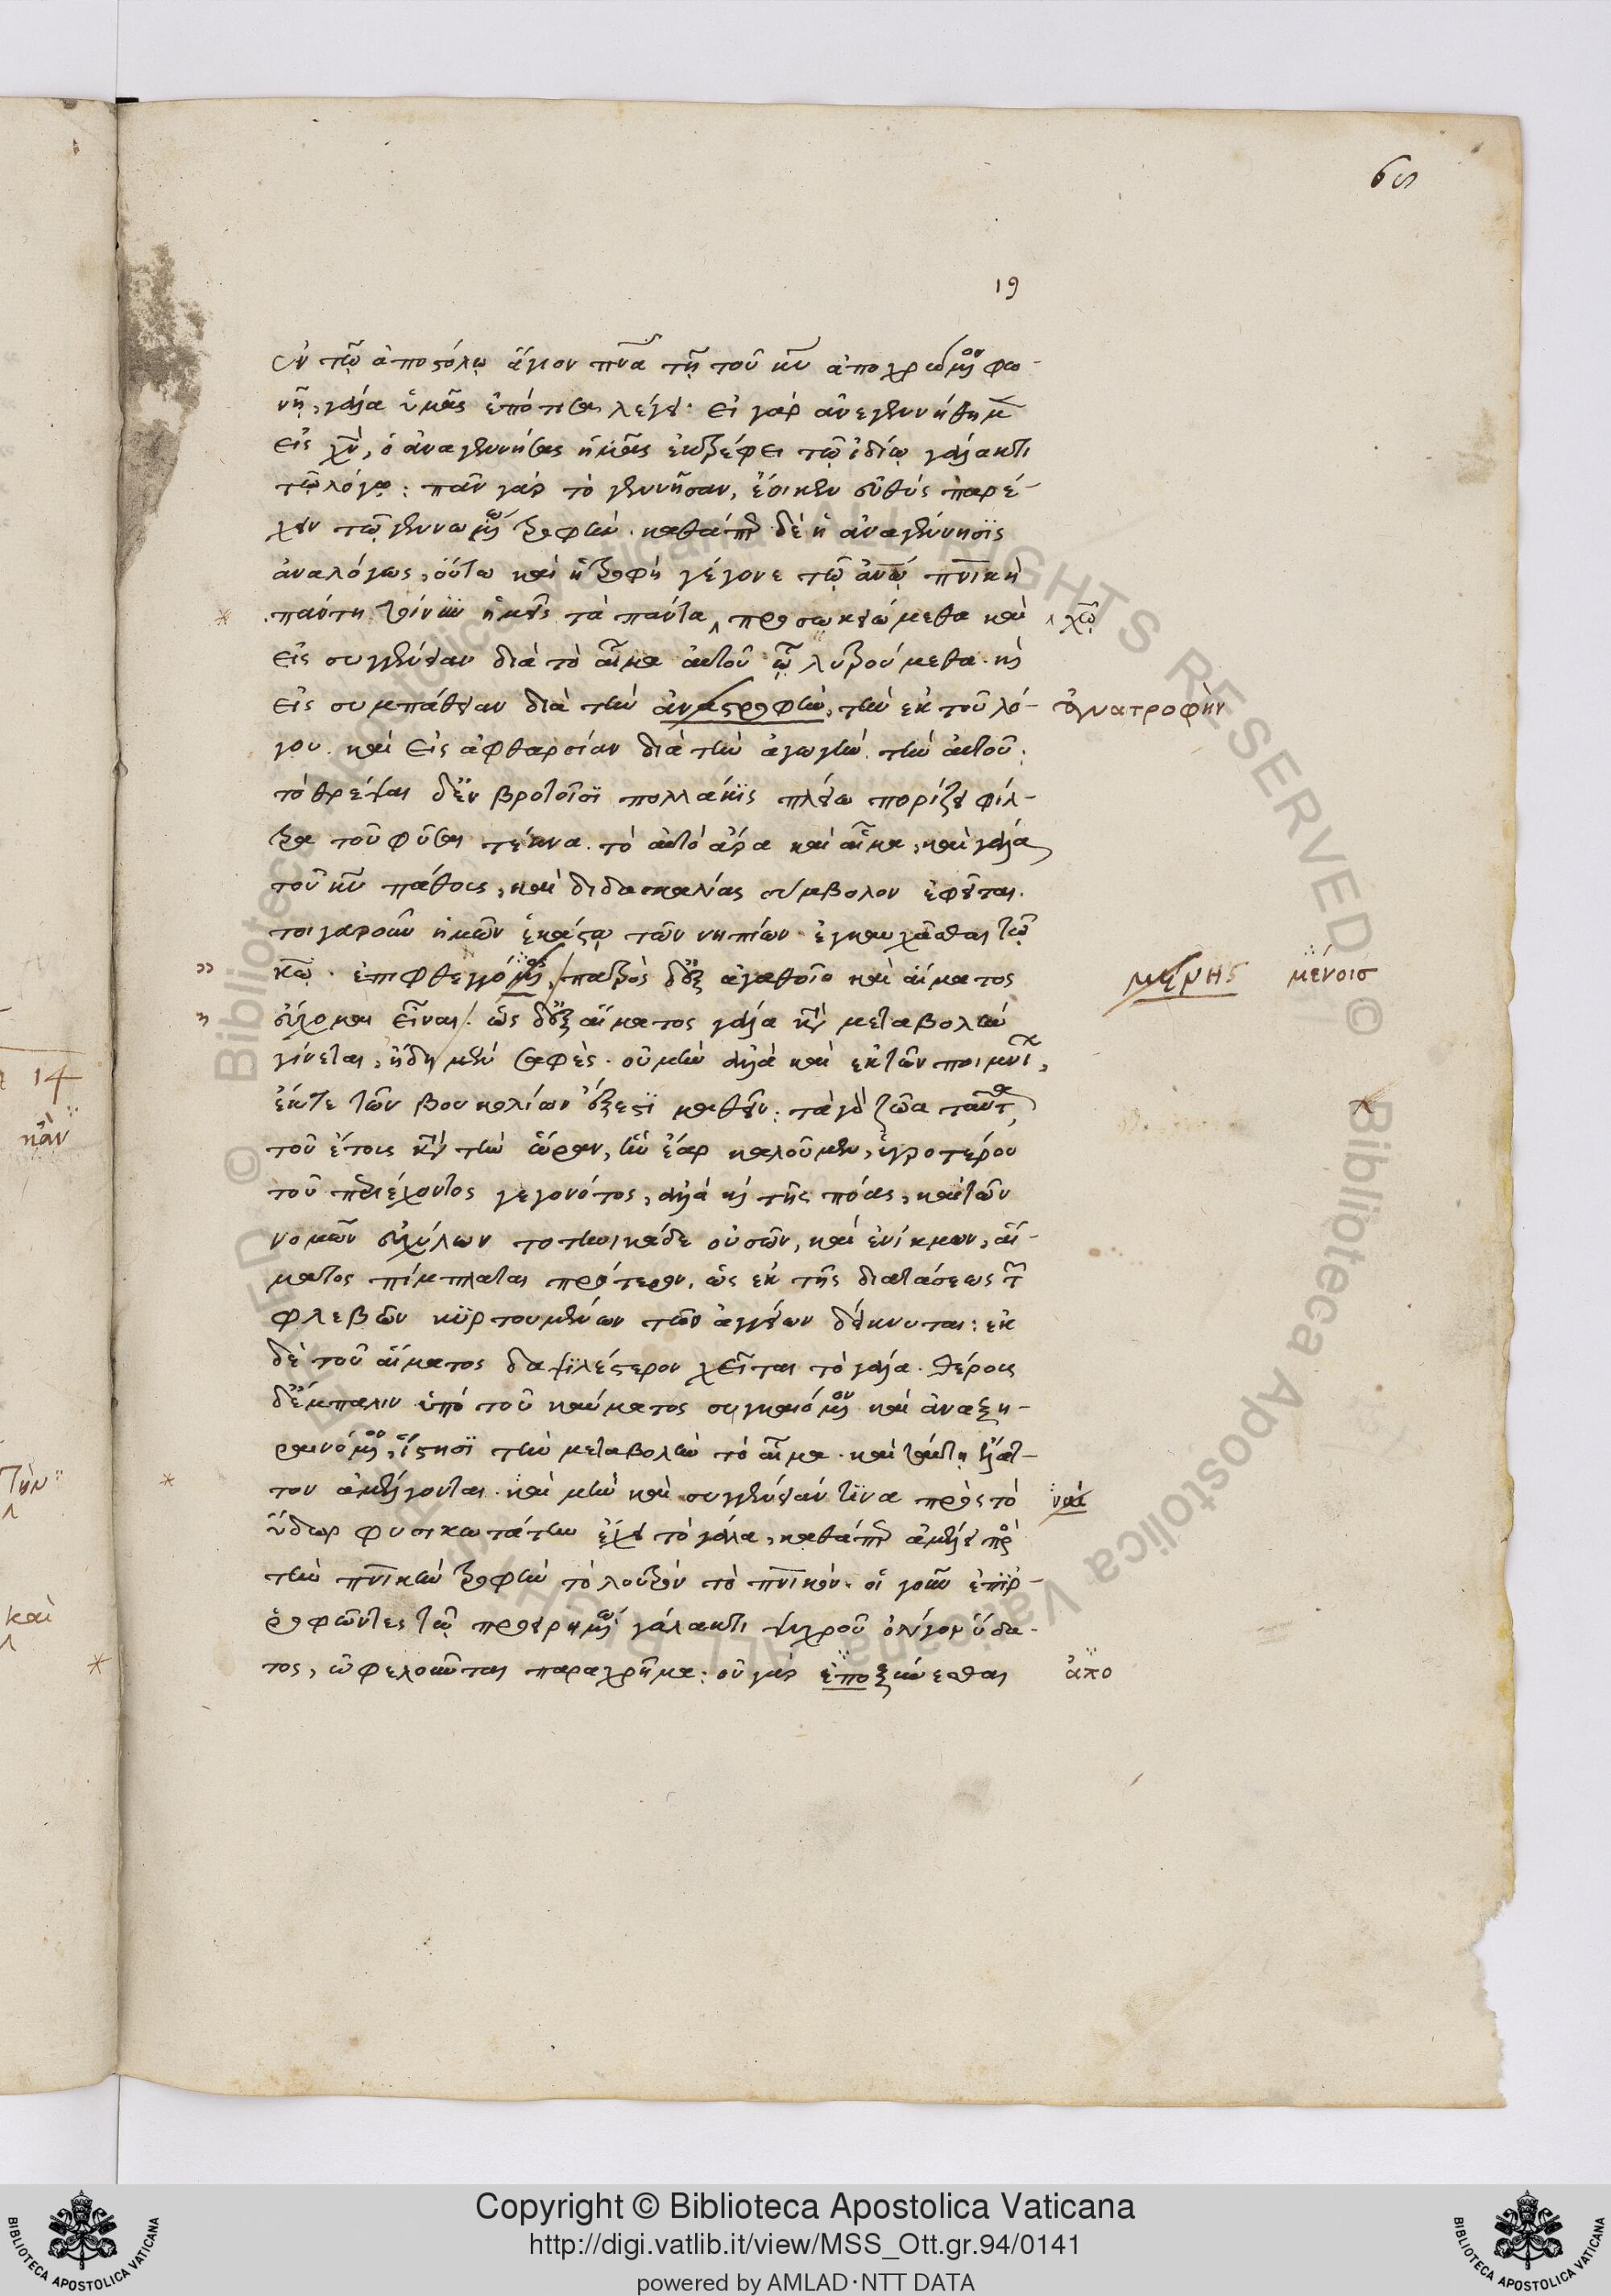 65
19
ἐν τῷ ἀποστόλῳ ἅγιον πνα τῇ τοῦ κυ ἀποχρώμενον φω-
νῇ, γάλα ὑμᾶς ἐπότισα λέγει· εἰ γὰρ ἀνεγεννήθημεν
εἰς χν, ὁ ἀναγεννήσας ἡμᾶς ἐκτρέφει τῷ ἰδίῳ γάλακτι
τῷ λόγῳ: πᾶν γὰρ τὸ γεννῆσαν, ἔοικεν εὐθὺς παρέ-
χειν τῷ γεννωμένῳ τροφήν· καθάπερ δὲ ἡ ἀναγέννησις
ἀναλόγως, οὕτω καὶ ἡ τροφὴ γέγονε τῷ ἀνῳ πνικὴ
* πάντη τοίνυν ἡμεῖς τὰ πάντα ‸ προσῳκειώμεθα καὶ ‸ χῷ
εἰς συγγένειαν διὰ τὸ αἷμα αὐτοῦ ᾧ λυτρούμεθα· καὶ
εἰς συμπάθειαν διὰ τὴν ἀναστροφὴν, τὴν ἐκ τοῦ λό- ἀνατροφὴν
γου. καὶ εἰς ἀφθαρσίαν διὰ τὴν ἀγωγὴν τὴν αὐτοῦ:
τὸ θρέψαι δ' ἐν βροτοῖσι πολλάκις πλείω πορίζει φίλ-
τρα τοῦ φῦσαι τέκνα. τὸ αὐτὸ ἄρα καὶ αἷμα, καὶ γάλα
τοῦ κυ πάθους, καὶ διδασκαλίας σύμβολον ἐφεῖται.
τοιγαροῦν ἡμῶν ἑκάστῳ τῶν νηπίων ἐγκαυχᾶσθαι τῷ
" κῳ· ἐπιφθεγγομένοις, πατρὸς δ' ἐξ ἀγαθοῖο καὶ αἵματος μένης μένοισ
" εὔχομαι εἶναι. ὡς δ' ἐξ αἵματος γάλα κατὰ μεταβολὴν
γίνεται, ἤδη μὲν σαφὲς. οὐ μὴν ἀλλὰ καὶ ἐκ τῶν ποιμνί,
ἐκ τε τῶν βουκολίων ἔξεστι μαθεῖν: τὰ γὰρ ζῶα ταῦτα
τοῦ ἔτους κατὰ τὴν ὥραν, ἣν ἔαρ καλοῦμεν, ὑγροτέρου
τοῦ περιέχοντος γεγονότος, ἀλλὰ καὶ τῆς πόας, καὶ τῶν
νομῶν εὐχύλων τοτηνικάδε οὐσῶν, καὶ ἐνίκμων, αἵ-
ματος πίμπλαται πρότερον, ὡς ἐκ τῆς διατάσεως τῶν
φλεβῶν κυρτουμένων τῶν ἀγγείων δείκνυται: ἐκ
δὲ τοῦ αἵματος δαψιλέστερον χεῖται τὸ γάλα. θέρους
δ' ἔμπαλιν ὑπὸ τοῦ καύματος συγκαιόμενον καὶ ἀναξη-
ραινόμενον, ἵστησι τὴν μεταβολὴν τὸ αἷμα· καὶ ταύτῃ ἔλατ-
* τον ἀμέλγονται. καὶ μὴν καὶ συγγένειάν τινα πρὸς τὸ ναὶ
ὕδωρ φυσικωτάτην ἔχει τὸ γάλα, καθάπερ ἀμέλει πρὸς
τὴν πνικὴν τροφὴν τὸ λουτρὸν τὸ πνικόν. οἱ γοῦν ἐπιρ-
ροφῶντες τῷ προειρημένῳ γάλακτι ψυχροῦ ὀλίγον ὕδα-
τος, ὠφελοῦνται παραχρῆμα: οὐ γὰρ ἐποξύνεσθαι ἀπο
14
κἂν
Τὴν
καὶ
*
Copyright © Biblioteca Apostolica Vaticana
http://digi.vatlib.it/view/MSS_Ott.gr.94/0141
powered by AMLAD·NTT DATA
BIBLIOTECA APOSTOLICA VATICANA
BIBLIOTECA APOSTOLICA VATICANA